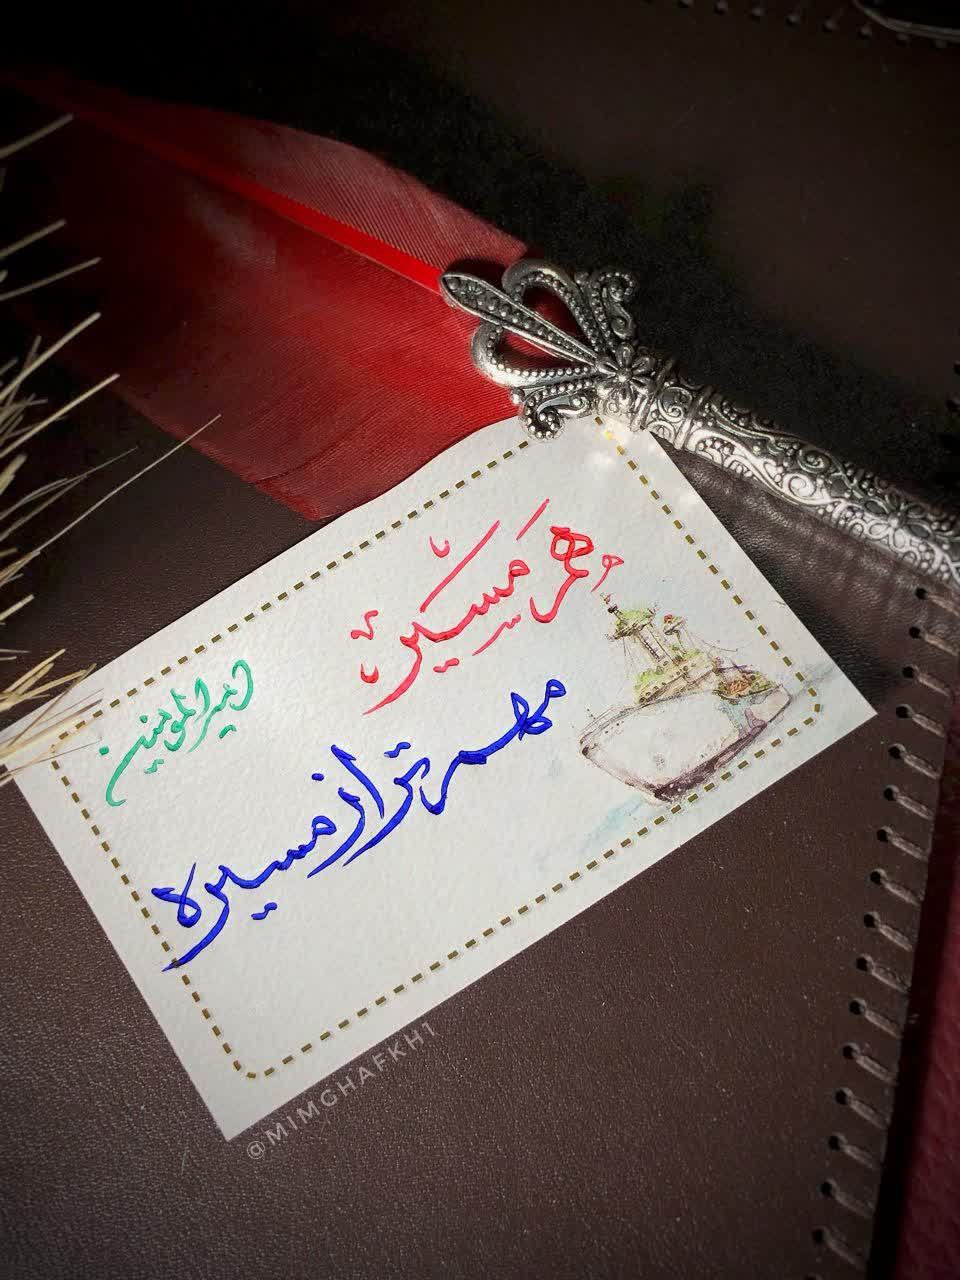 هم مسیر
مهم تر از مسیره
دبیرالمومنین
@MIMGHAFKH1